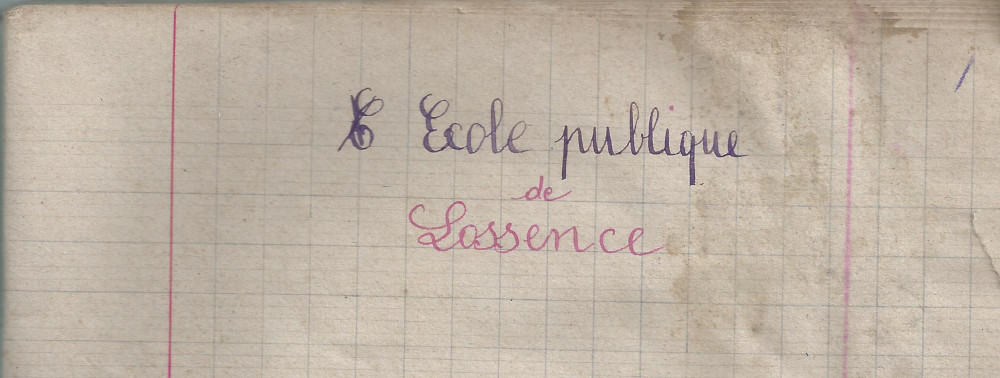 Ecole publique
de
Lossence